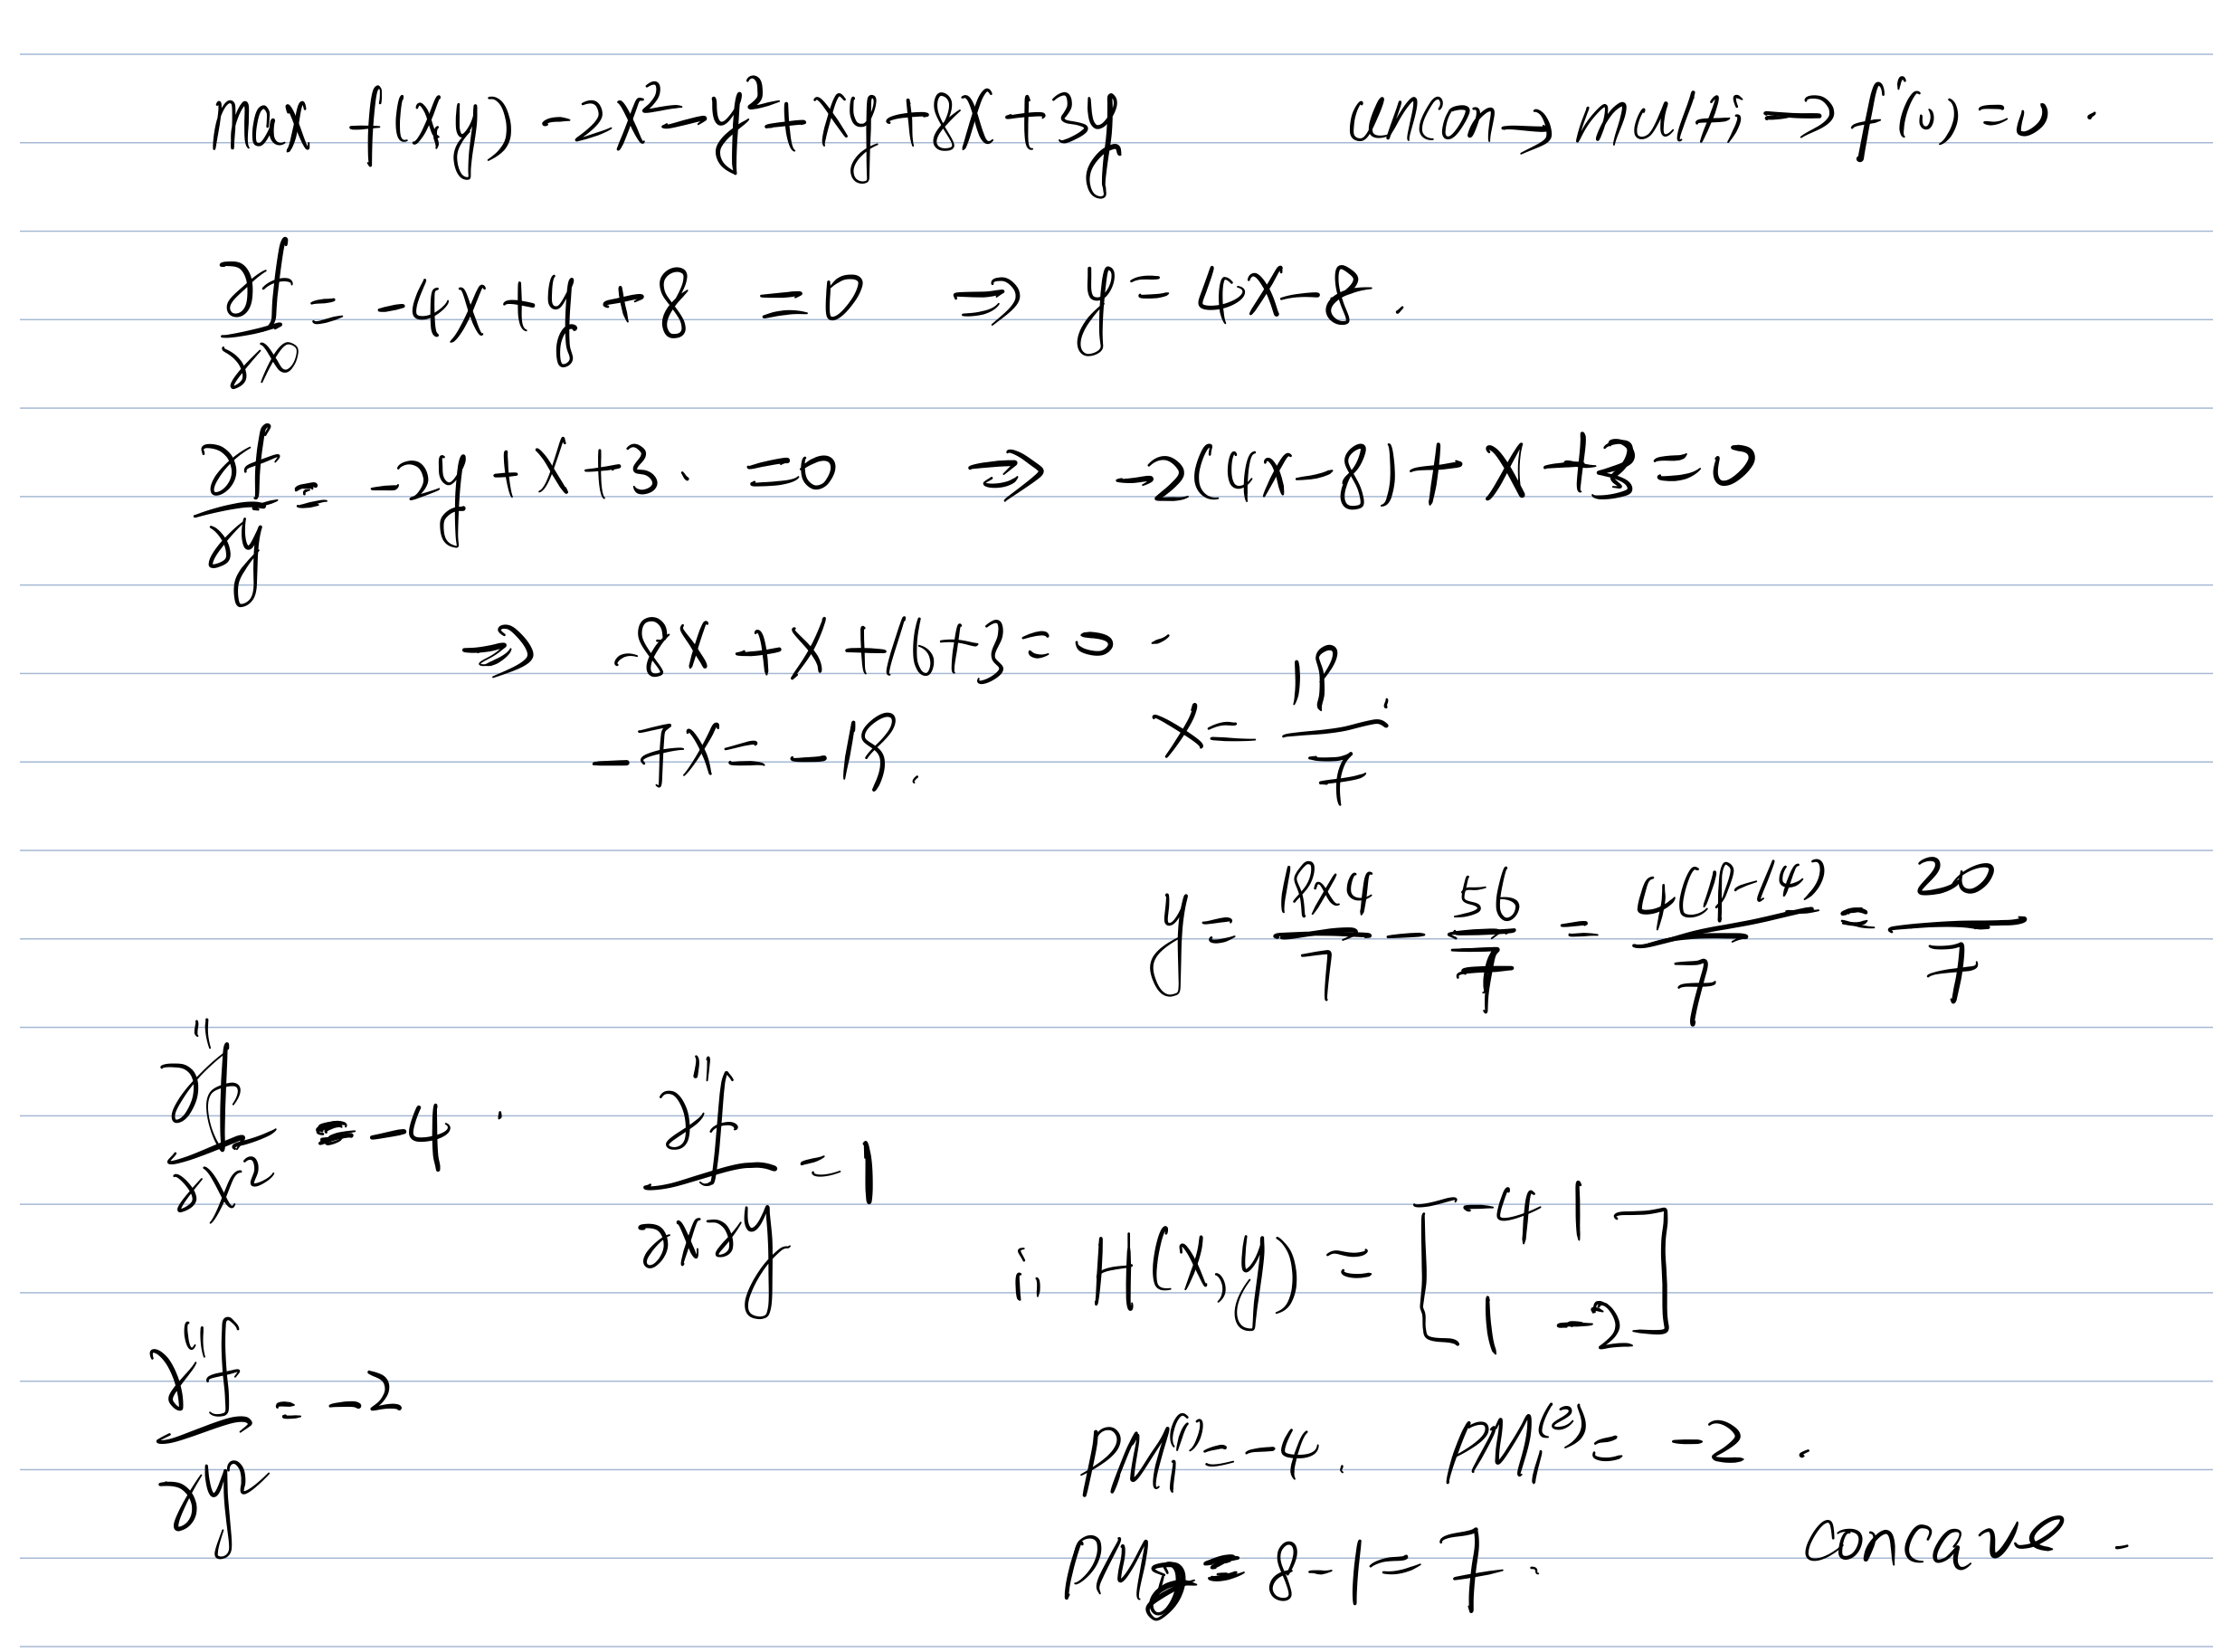 max f(x,y) = -2x²-y²+xy+8x+3y    uncon, multi ⇒ f'(v) = 0.
∂f/∂x = -4x+y+8 = 0 ⇒ y = 4x-8.
∂f/∂y = -2y+x+3. = 0 ⇒ -2(4x-8)+x+3=0
⇒ -8x+x+16+3=0
-7x=-19.    x=19/7
y = 19×4/7 - 56/7 = 4(19-14)/7 = 20/7
∂''f/∂x² = -4    ∂''f/∂x∂y = 1
∴ H(x,y) = [-4 1
1 -2]
∂''f/∂y² = -2
PM₁⁽¹⁾ = -4.    PM₁⁽²⁾ = -2.
PM₂ = 8-1=7.    concave.